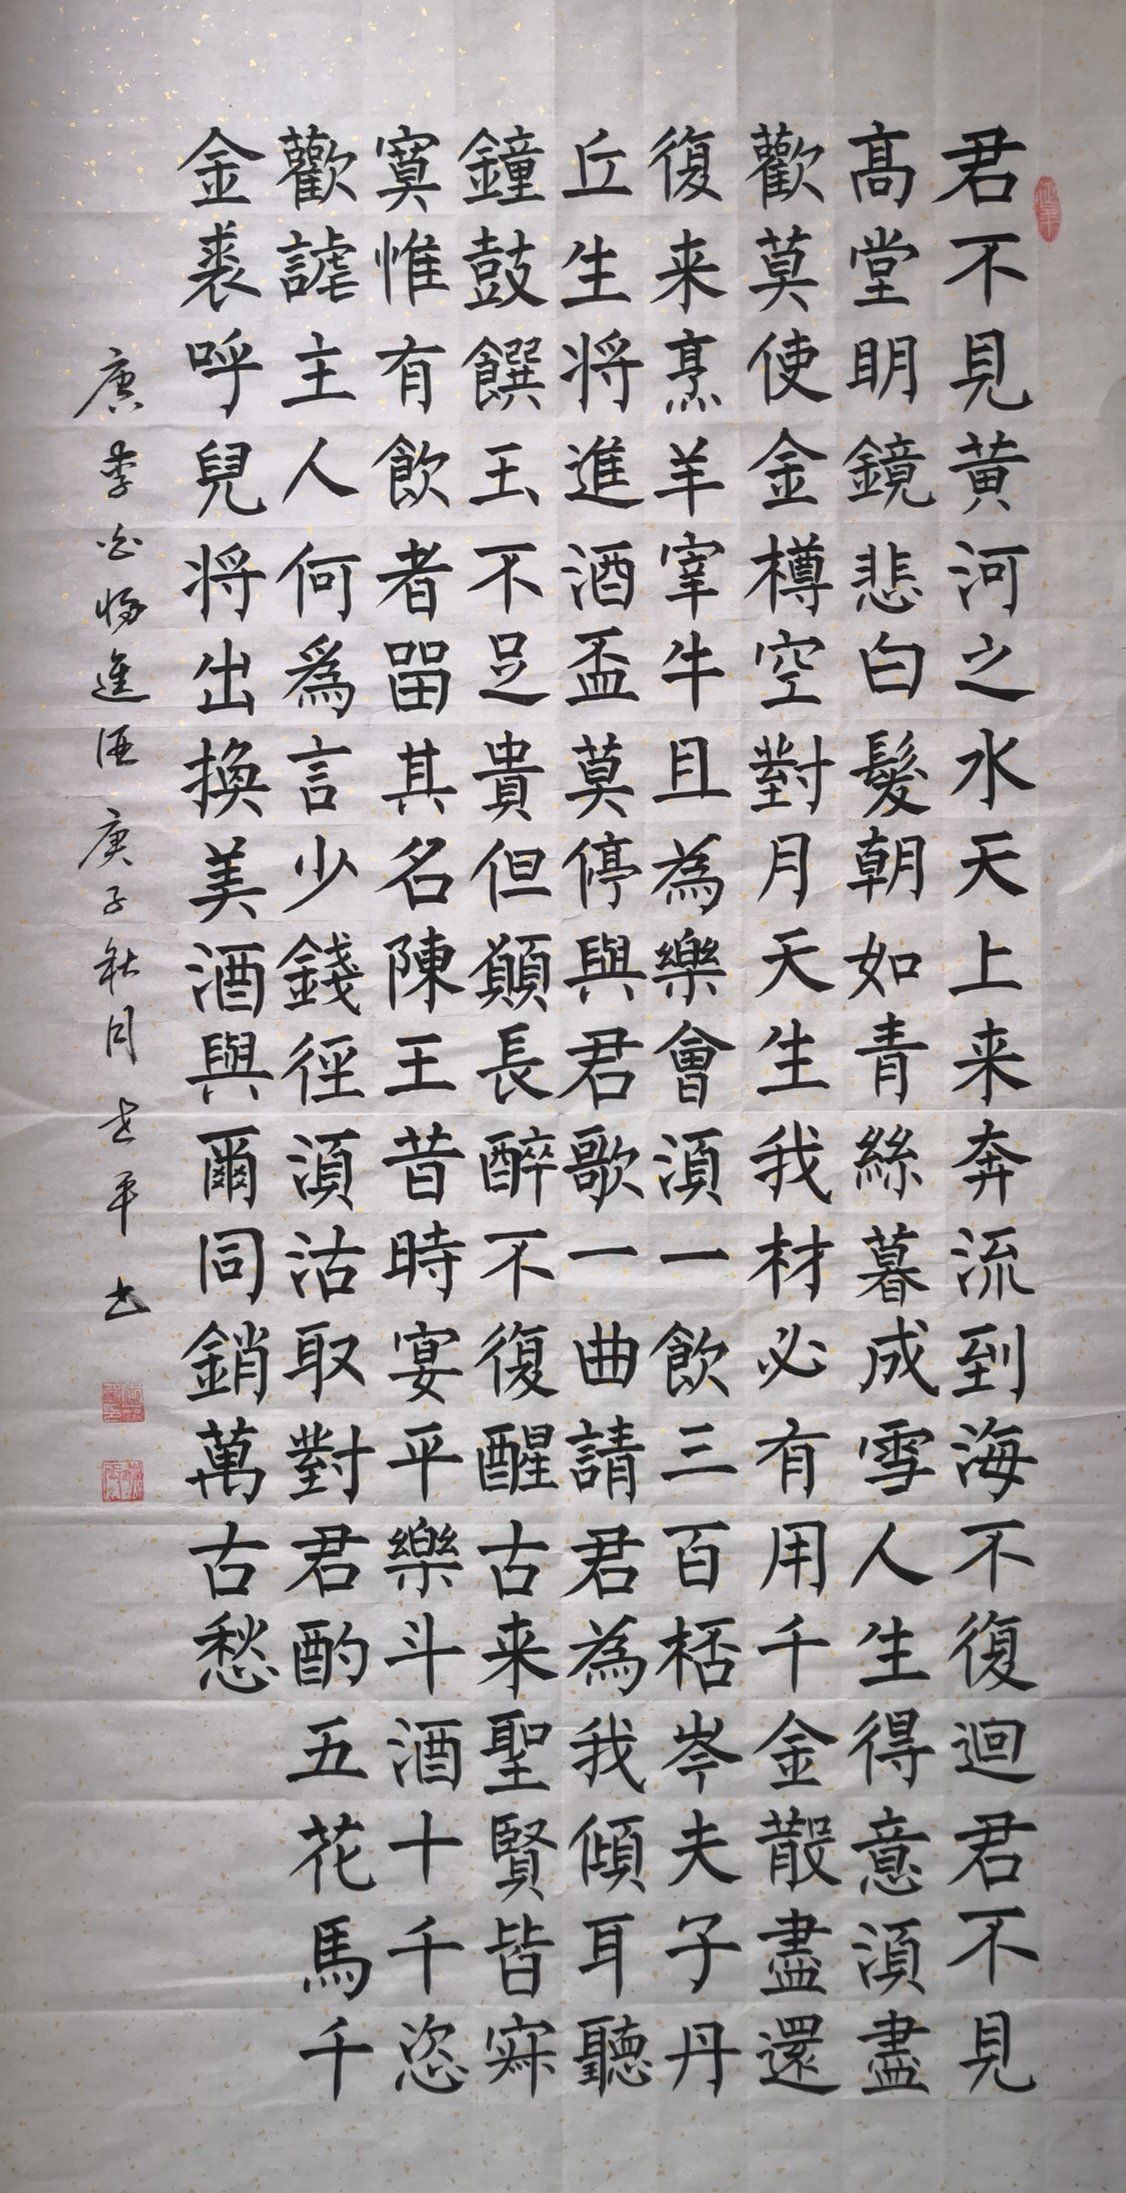 君不見黃河之水天上来奔流到海不復迴君不見
高堂明鏡悲白髮朝如青絲暮成雪人生得意須盡
歡莫使金樽空對月天生我材必有用千金散盡還
復来烹羊宰牛且為樂會須一飲三百桮岑夫子丹
丘生将進酒盃莫停與君歌一曲請君為我傾耳聽
鐘鼓饌玉不足貴但願長醉不復醒古来聖賢皆寂
寞惟有飲者留其名陳王昔時宴平樂斗酒十千恣
歡謔主人何為言少錢徑須沽取對君酌五花馬千
金裘呼兒将出換美酒與爾同銷萬古愁
唐李白将進酒庚子秋月平书